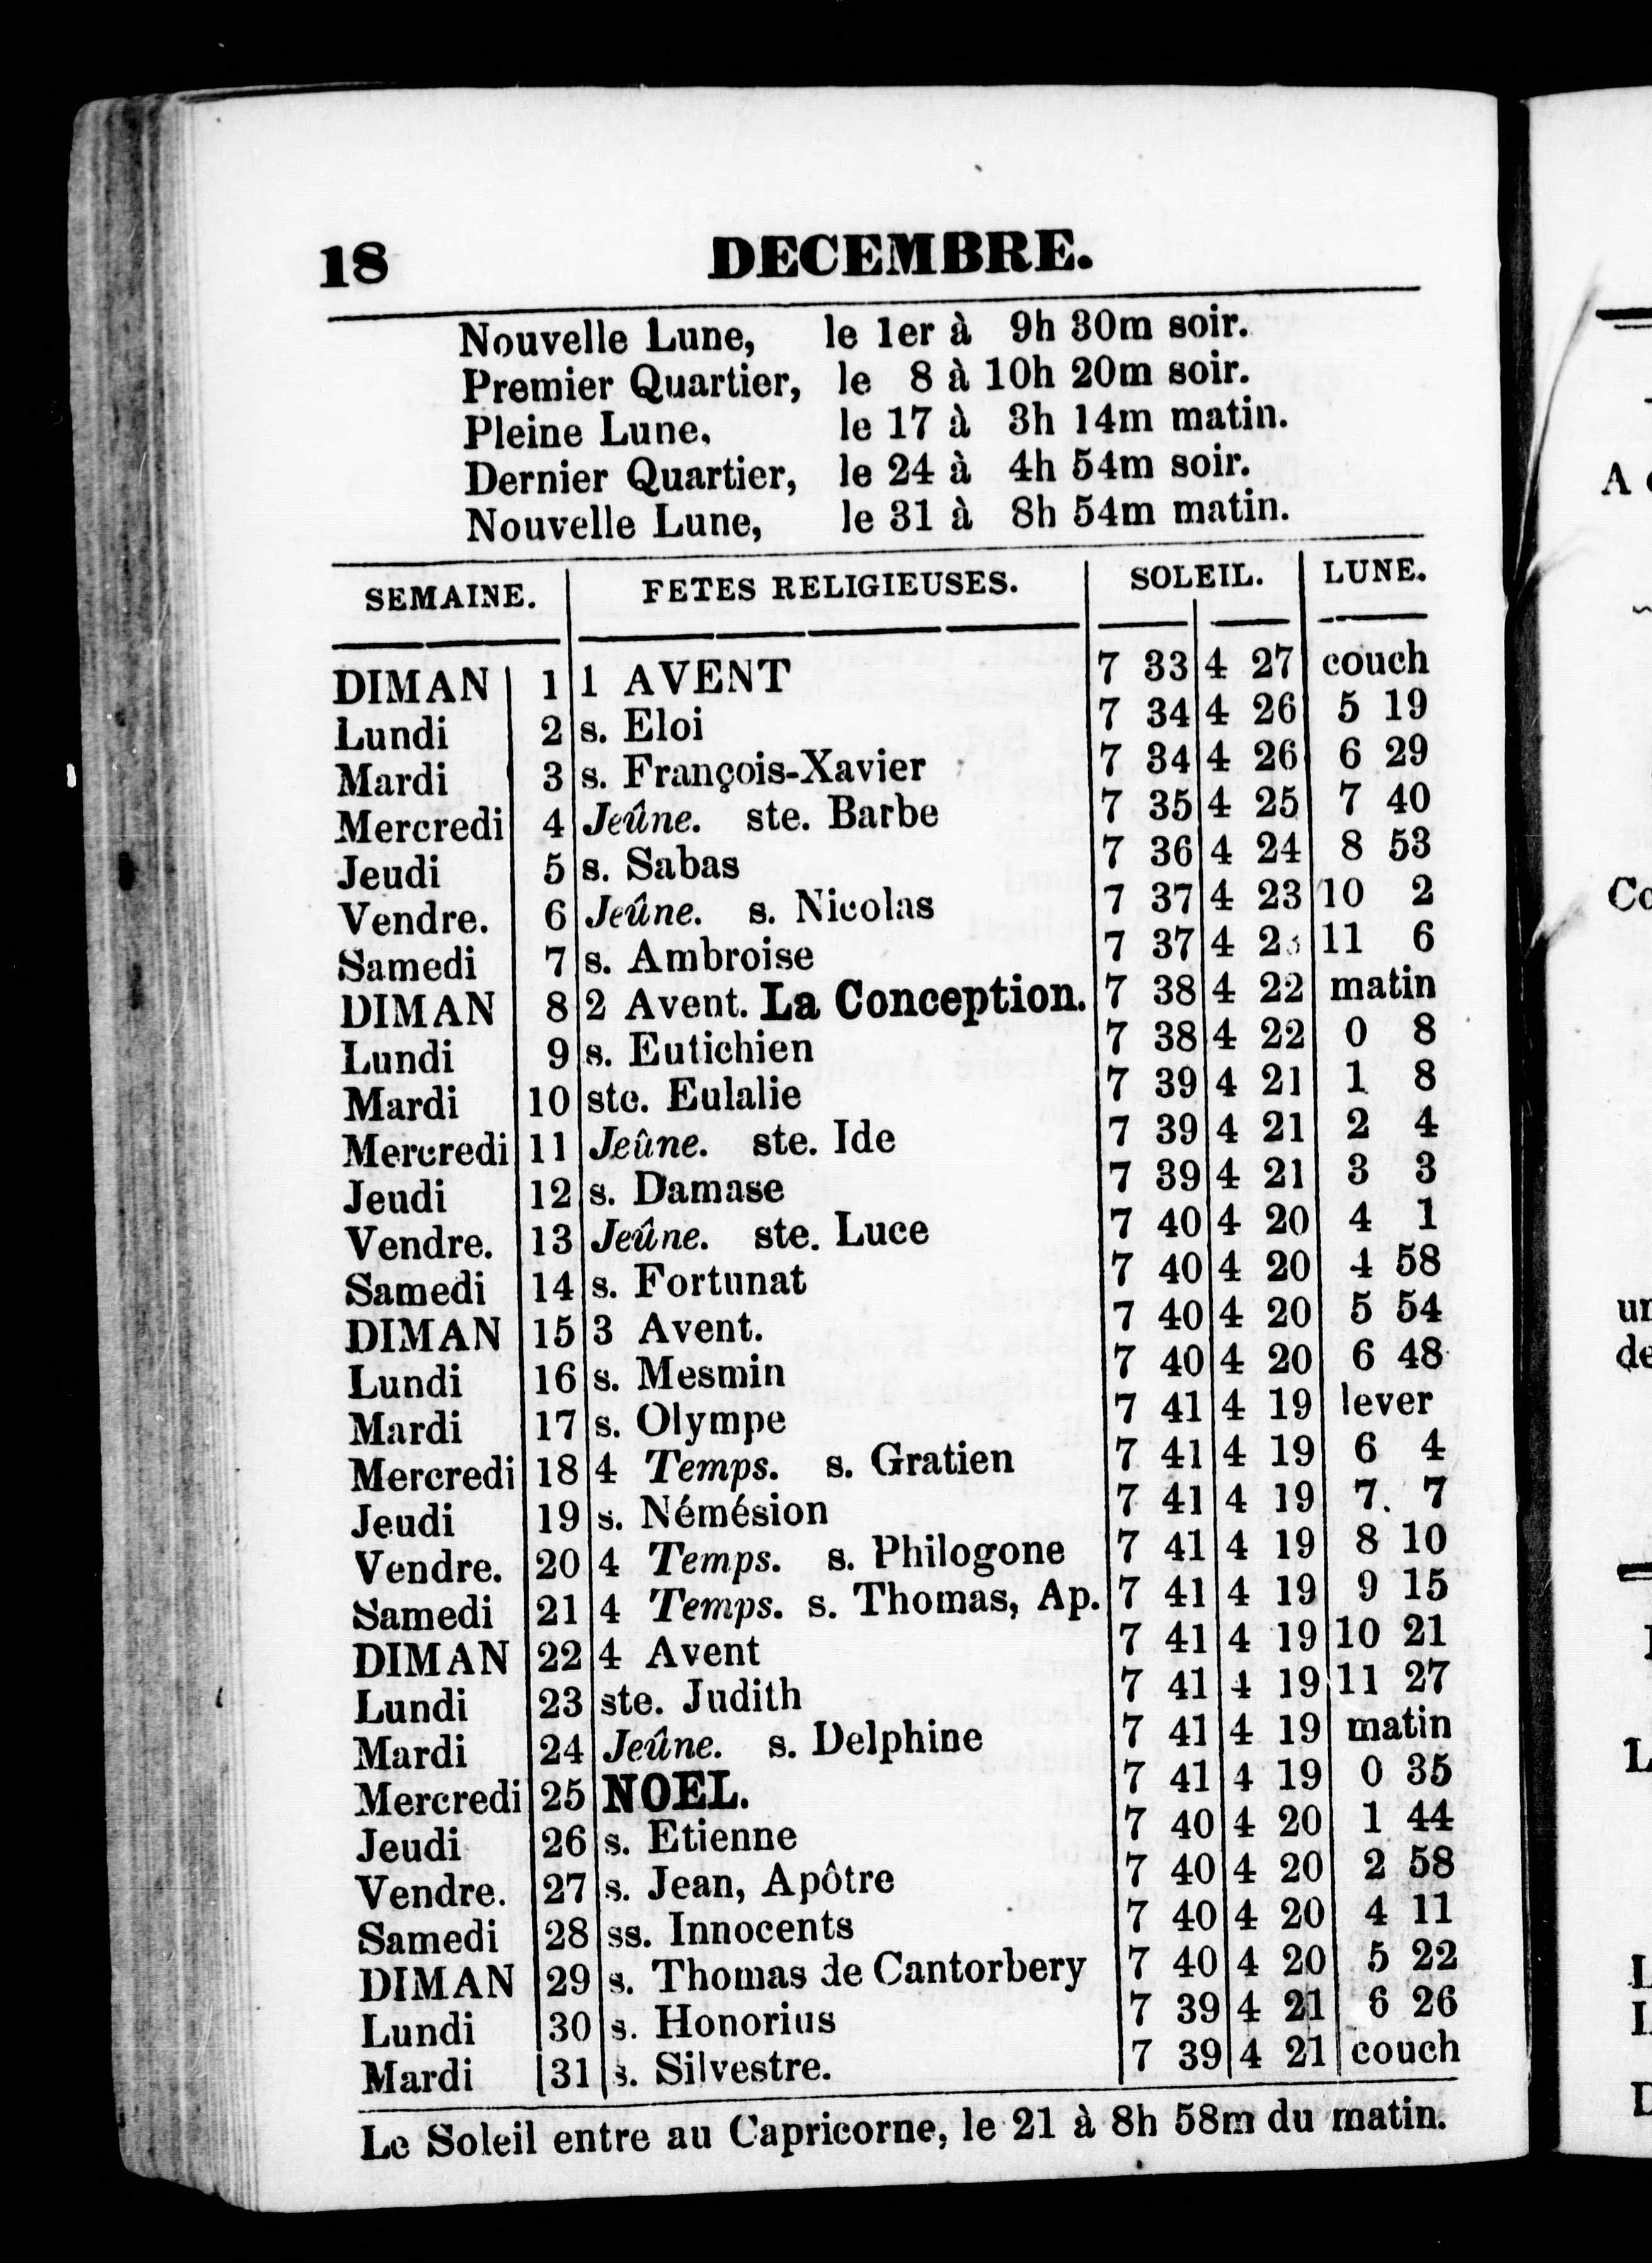 18 DECEMBRE.
Nouvelle Lune, le 1er à 9h 30m soir.
Premier Quartier, le 8 à 10h 20m soir.
Pleine Lune, le 17 à 3h 14m matin.
Dernier Quartier, le 24 à 4h 54m soir.
Nouvelle Lune, le 31 à 8h 54m matin.
SEMAINE. FETES RELIGIEUSES. SOLEIL. LUNE.
DIMAN 1 1 AVENT 7 33 4 27 couch
Lundi 2 s. Eloi 7 34 4 26 5 19
Mardi 3 s. François-Xavier 7 34 4 26 6 29
Mercredi 4 Jeûne. ste. Barbe 7 35 4 25 7 40
Jeudi 5 s. Sabas 7 36 4 24 8 53
Vendre. 6 Jeûne. s. Nicolas 7 37 4 23 10 2
Samedi 7 s. Ambroise 7 37 4 23 11 6
DIMAN 8 2 Avent. La Conception. 7 38 4 22 matin
Lundi 9 s. Eutichien 7 38 4 22 0 8
Mardi 10 ste. Eulalie 7 39 4 21 1 8
Mercredi 11 Jeûne. ste. Ide 7 39 4 21 2 4
Jeudi 12 s. Damase 7 39 4 21 3 3
Vendre. 13 Jeûne. ste. Luce 7 40 4 20 4 1
Samedi 14 s. Fortunat 7 40 4 20 4 58
DIMAN 15 3 Avent. 7 40 4 20 5 54
Lundi 16 s. Mesmin 7 40 4 20 6 48
Mardi 17 s. Olympe 7 41 4 19 lever
Mercredi 18 4 Temps. s. Gratien 7 41 4 19 6 4
Jeudi 19 s. Némésion 7 41 4 19 7. 7
Vendre. 20 4 Temps. s. Philogone 7 41 4 19 8 10
Samedi 21 4 Temps. s. Thomas, Ap. 7 41 4 19 9 15
DIMAN 22 4 Avent 7 41 4 19 10 21
Lundi 23 ste. Judith 7 41 4 19 11 27
Mardi 24 Jeûne. s. Delphine 7 41 4 19 matin
Mercredi 25 NOEL. 7 41 4 19 0 35
Jeudi 26 s. Etienne 7 40 4 20 1 44
Vendre. 27 s. Jean, Apôtre 7 40 4 20 2 58
Samedi 28 ss. Innocents 7 40 4 20 4 11
DIMAN 29 s. Thomas de Cantorbery 7 40 4 20 5 22
Lundi 30 s. Honorius 7 39 4 21 6 26
Mardi 31 s. Silvestre. 7 39 4 21 couch
Le Soleil entre au Capricorne, le 21 à 8h 58m du matin.